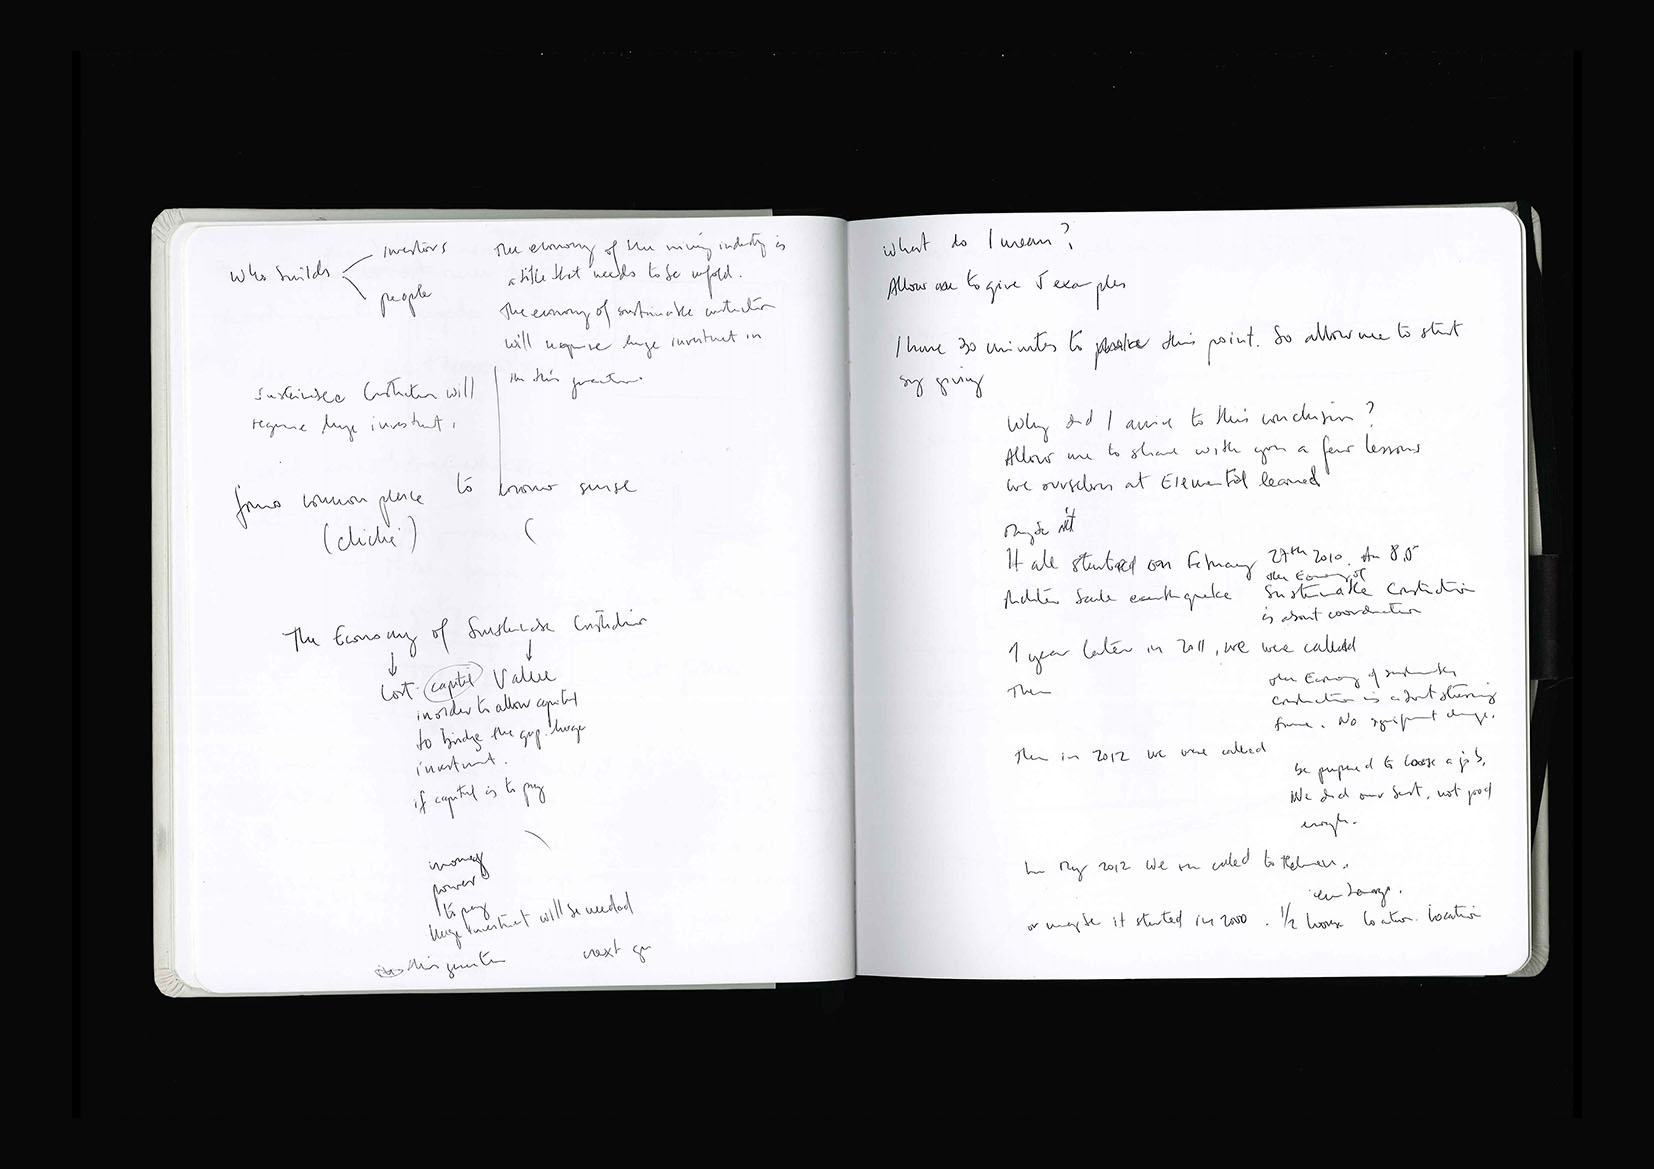 Who builds
investors
people
The economy of the mining industry is
a title that needs to be
The economy of sustainable construction
will require huge investment in
in this
Sustainable Construction will
require huge investment.
from common place to common sense
(cliché) (
The Economy of Sustainable Construction
Cost capital Value
in order to allow capital
to bridge the gap. huge
investment.
if capital is to pay
money
power
to pay
huge investment will be needed
this
next
What do I mean?
Allow me to give 5 examples
I have 30 minutes to this point. So allow me to start
by giving
Why did I arrive to this conclusion?
Allow me to share with you a few lessons
we ourselves at Elemental learned
Maybe it
It all started on February 27th 2010. An 8.8
Richter Scale earthquake
the Economy of
Sustainable Construction
is about coordination
1 year later in 2011, we were called
Then
the Economy of sustainable
construction is about
frame. No change.
Then in 2012 we were called
be prepared to loose a job,
We did our best, not good
enough.
In May 2012 we called to
or maybe it started in 2000. 1/2 house location. location